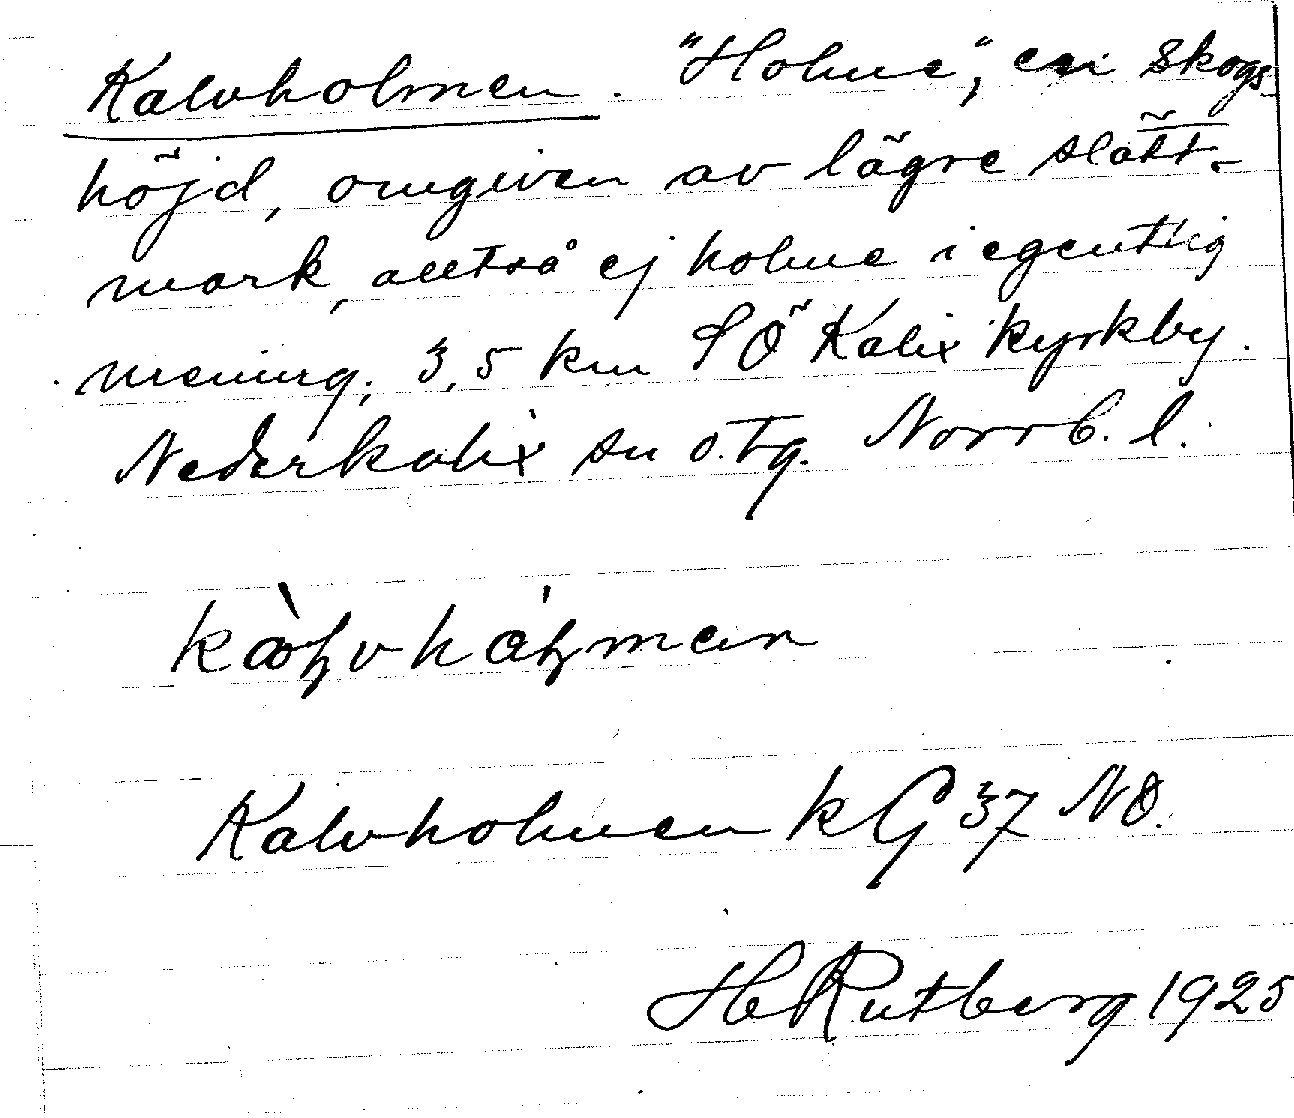 Kalvholmen. "Holme", en skogs-
höjd, omgiven av lägre slått-
mark, alltså ej holme i egentlig
mening, 3,5 km SÖ Kalix kyrkby.
Nederkalix sn o. tg. Norrb. l.
Kalvholmen k G 37 NÖ.
H Rutberg 1925